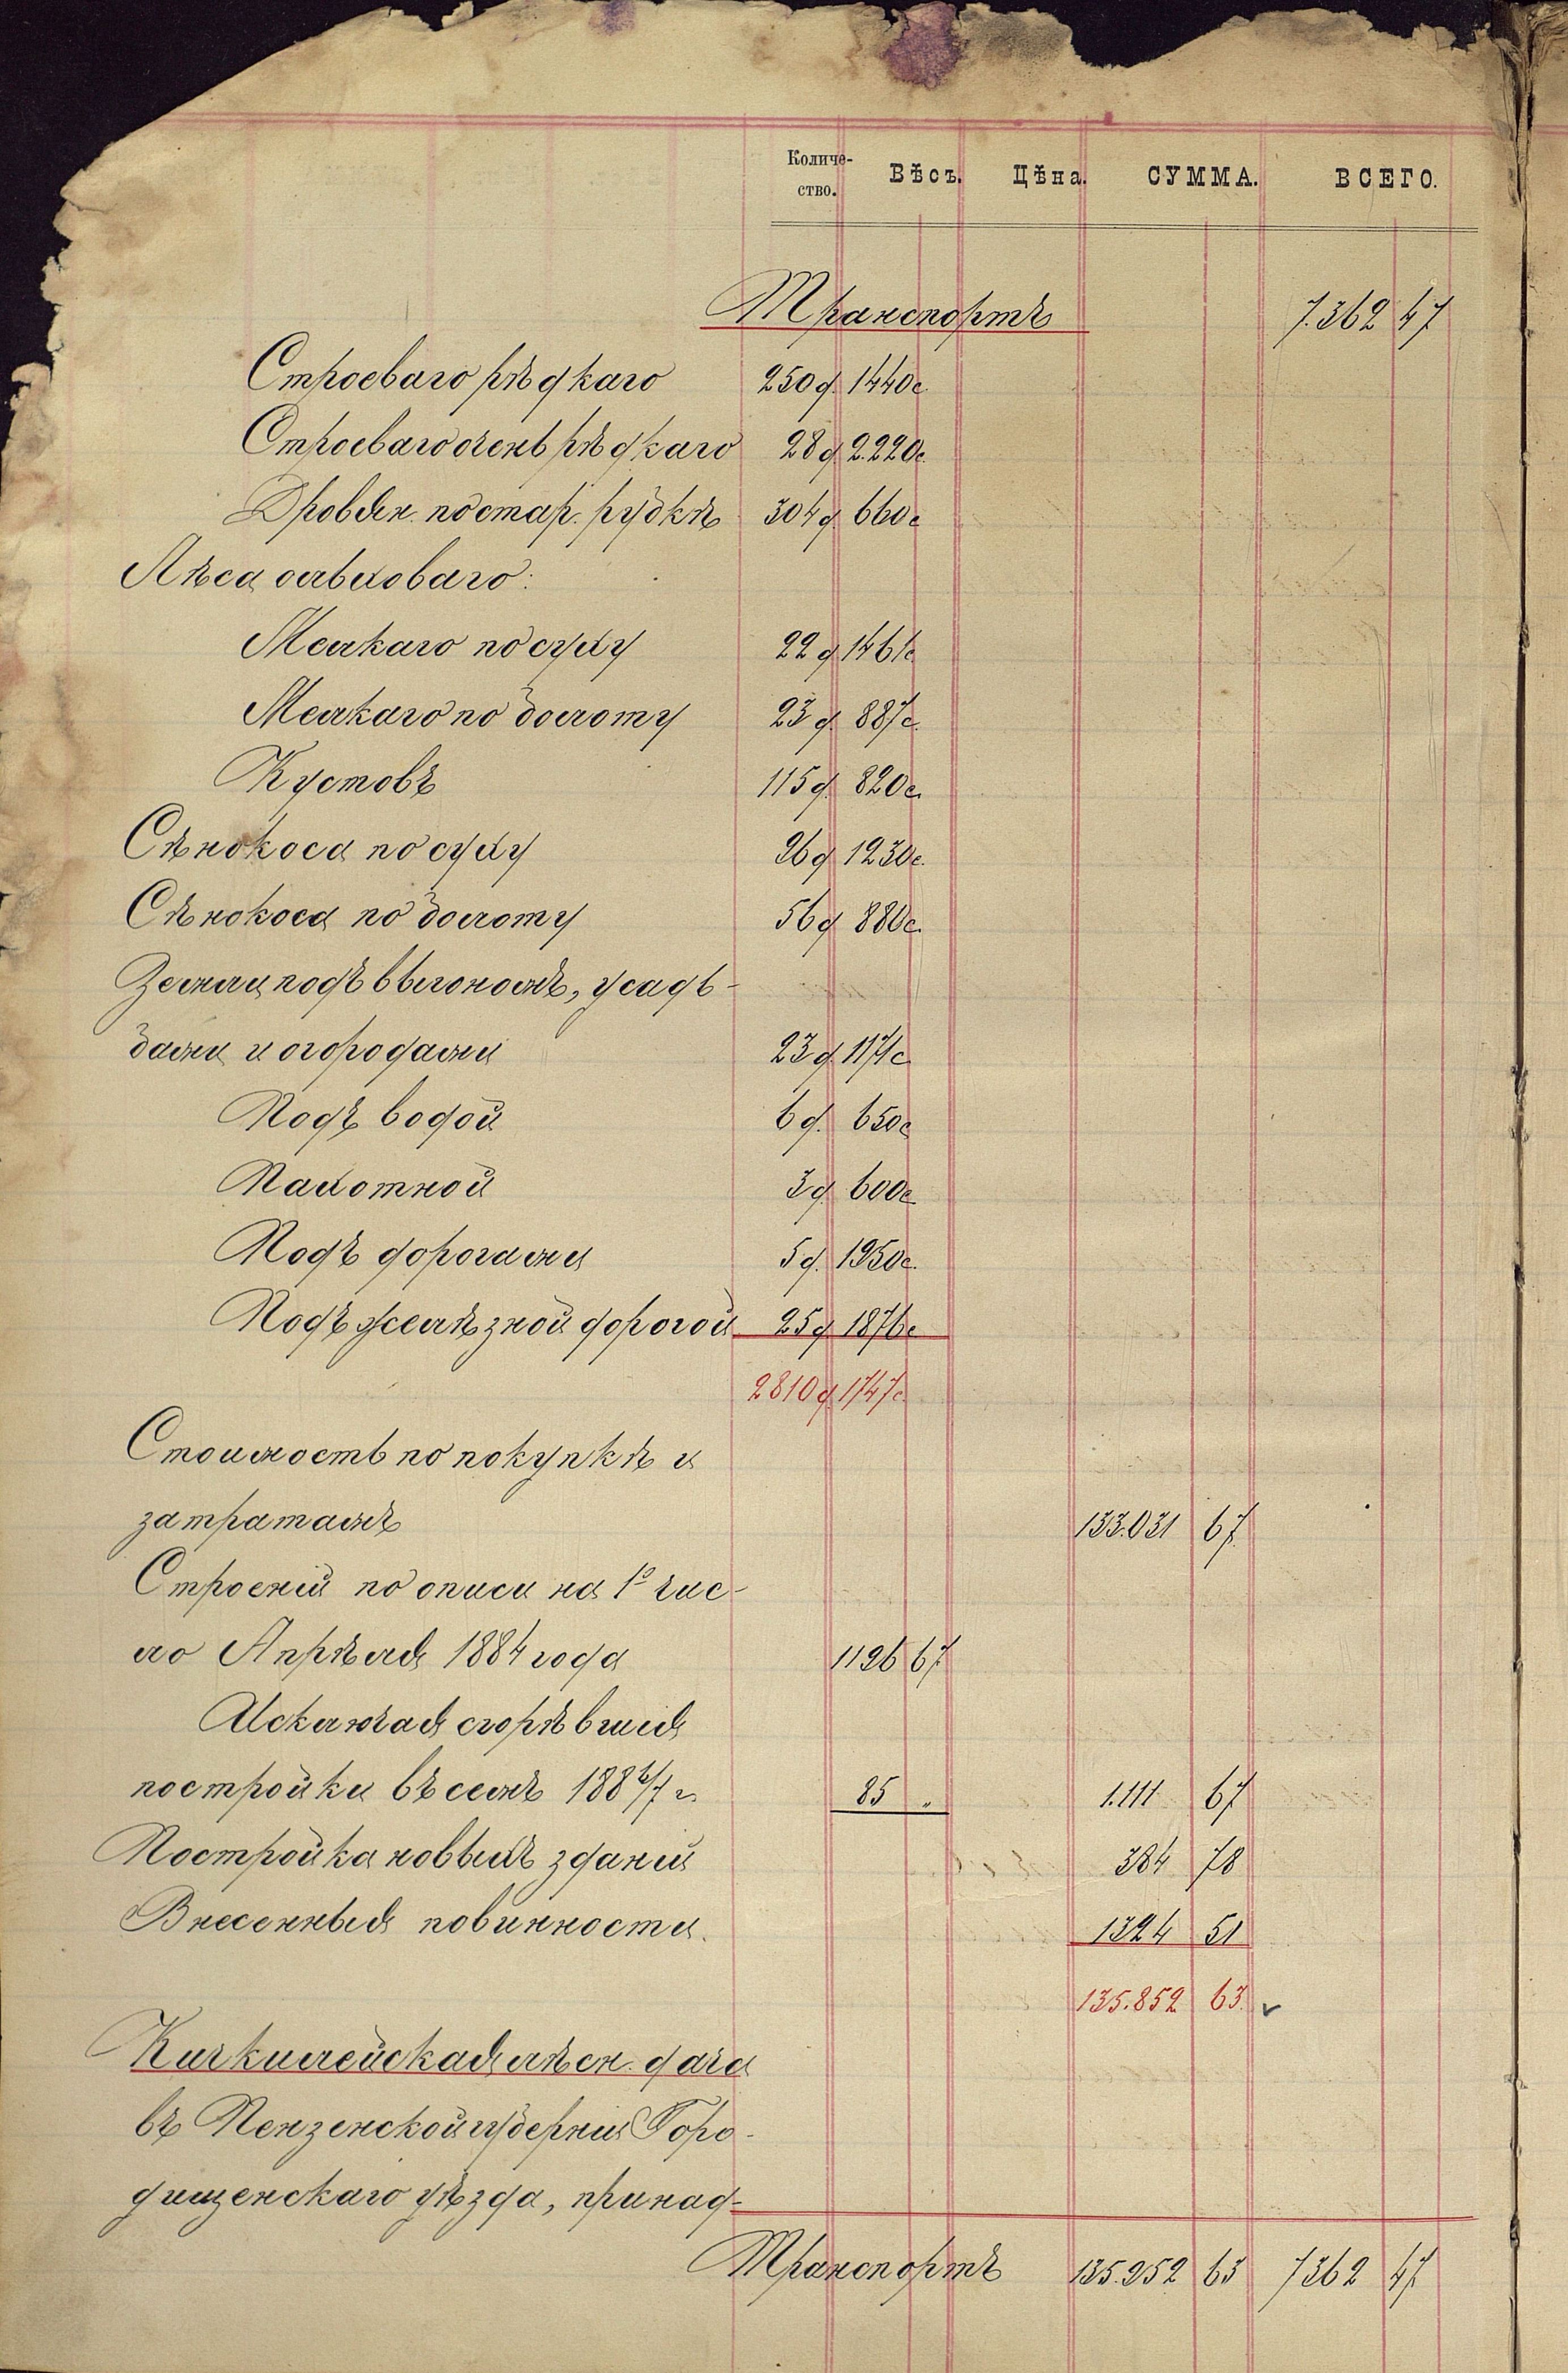 Количе-
ство. Вѣсъ. Цѣна. СУММА. ВСЕГО.
Транспортъ 7.362 47
Строеваго рѣдкаго 250 д. 1440 с.
Строеваго очень рѣдкаго 28 д. 2.220 с.
Дровян. по стар. рубкѣ 304 д. 660 с
Лѣса ольховаго:
Мелкаго по суху 22 д 1461 с
Мелкаго по болоту 23 д. 887 с.
Кустовъ 115 д. 820 с.
Сѣнокоса по суху 26 д 1230 с.
Сѣнокоса по болоту 56 д 880 с.
Земли подъ выгономъ, усадь-
бами и огородами 23 д. 1171 с
Подъ водой 6 д. 650 с
Пахотной 3 д. 600 с
Подъ дорогами 5 д. 1250 с.
Подъ желѣзной дорогой 25 д 1876 с
2810 д. 1747 с.
Стоимость по покупкѣ и
затратамъ 133.031 67
Строеній по описи на 1е чис-
ло Апрѣля 1884 года 1196 67
Исключая сгорѣвшія
постройки въ семъ 1886/7 г. 85 „ 1.111 67
Постройка новыхъ зданій 384 78
Внесенныя повинности. 1324 51
135.852 63
Кичкилейская лѣсн. дача
въ Пензенской губерніи Горо-
дищенскаго уѣзда, принад-
Транспортъ 135.852 63 7362 47